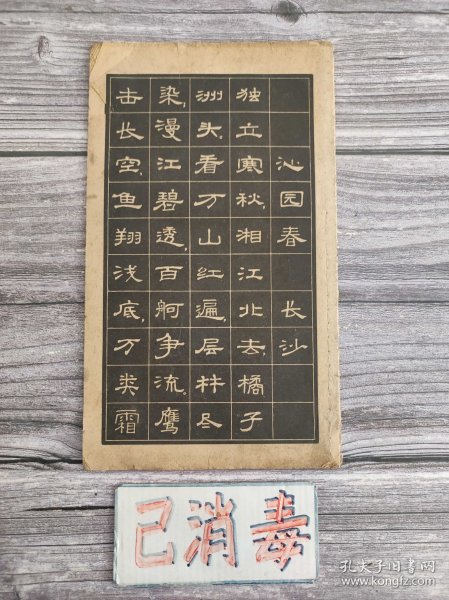 沁园春 长沙
独立寒秋，湘江北去，橘子
洲头，看万山红遍，层林尽
染，漫江碧透，百舸争流。鹰
击长空，鱼翔浅底，万类霜
已消毒
孔夫子旧书网
www.kongfz.com